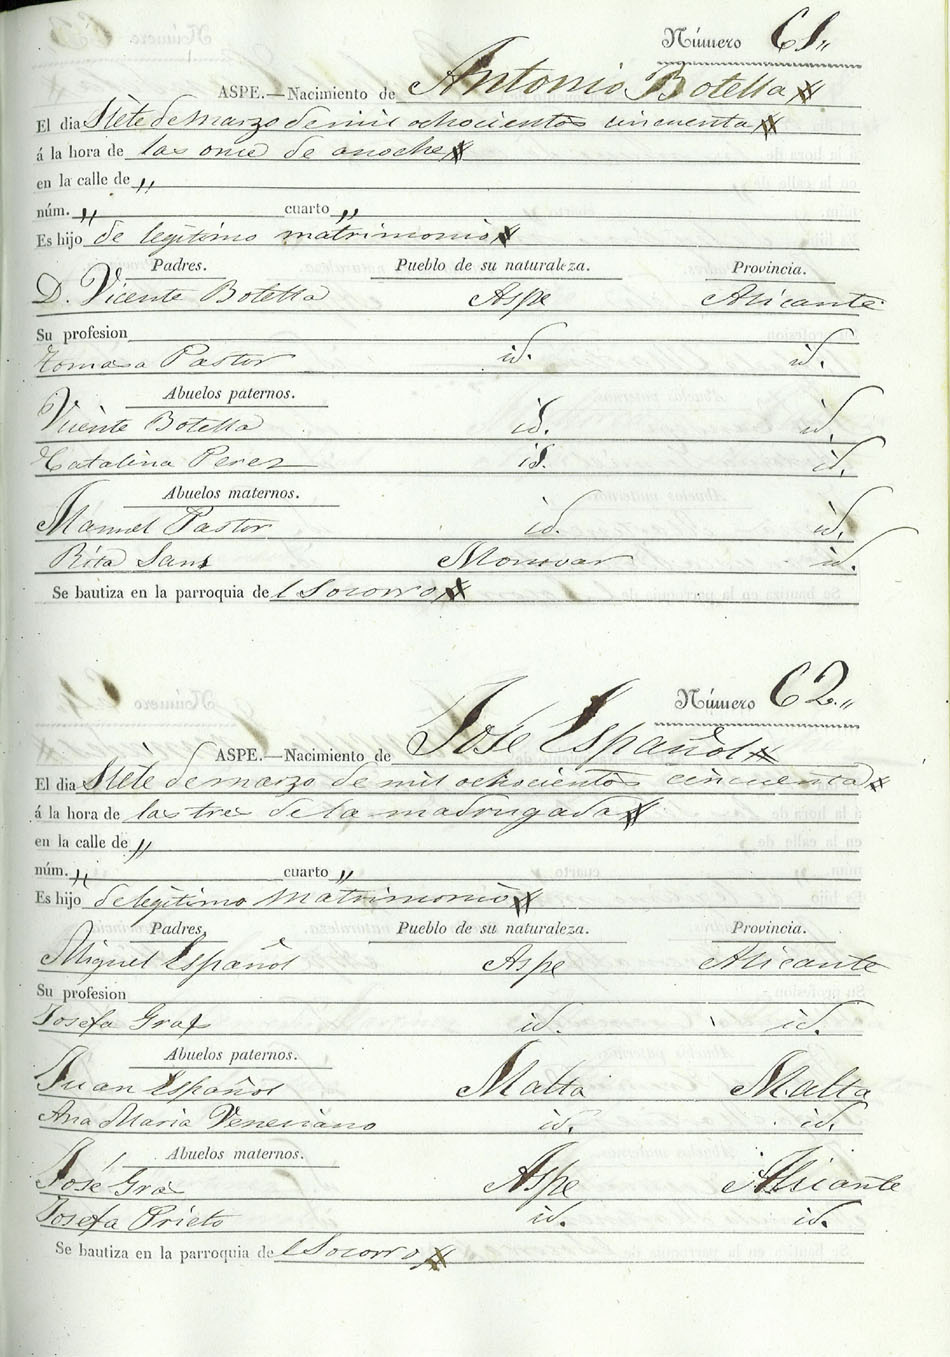 Número 61„
ASPE.—Nacimiento de Antonio Botella
El dia Siete de marzo de mil ochocientos cincuenta
á la hora de las once de anoche
en la calle de „
núm. „ cuarto „
Es hijo de legitimo matrimonio
Padres. Pueblo de su naturaleza. Provincia.
D. Vicente Botella Aspe Alicante
Su profesion
Tomasa Pastor id. id.
Abuelos paternos.
Vicente Botella id. id.
Catalina Perez id. id.
Abuelos maternos.
Manuel Pastor id. id.
Rita Sans Monovar id.
Se bautiza en la parroquia de l Socorro
Número 62„
ASPE.—Nacimiento de José Español
El dia Siete de marzo de mil ochocientos cincuenta
á la hora de las tres de la madrugada
en la calle de „
núm. „ cuarto „
Es hijo de legitimo matrimonio
Padres, Pueblo de su naturaleza. Provincia.
Miguel Español Aspe Alicante
Su profesion
Josefa Gras id. id.
Abuelos paternos.
Juan Español Malta Malta
Ana Maria Veneciano id. id.
Abuelos maternos.
José Gras Aspe Alicante
Josefa Prieto id. id.
Se bautiza en la parroquia de l Socorro